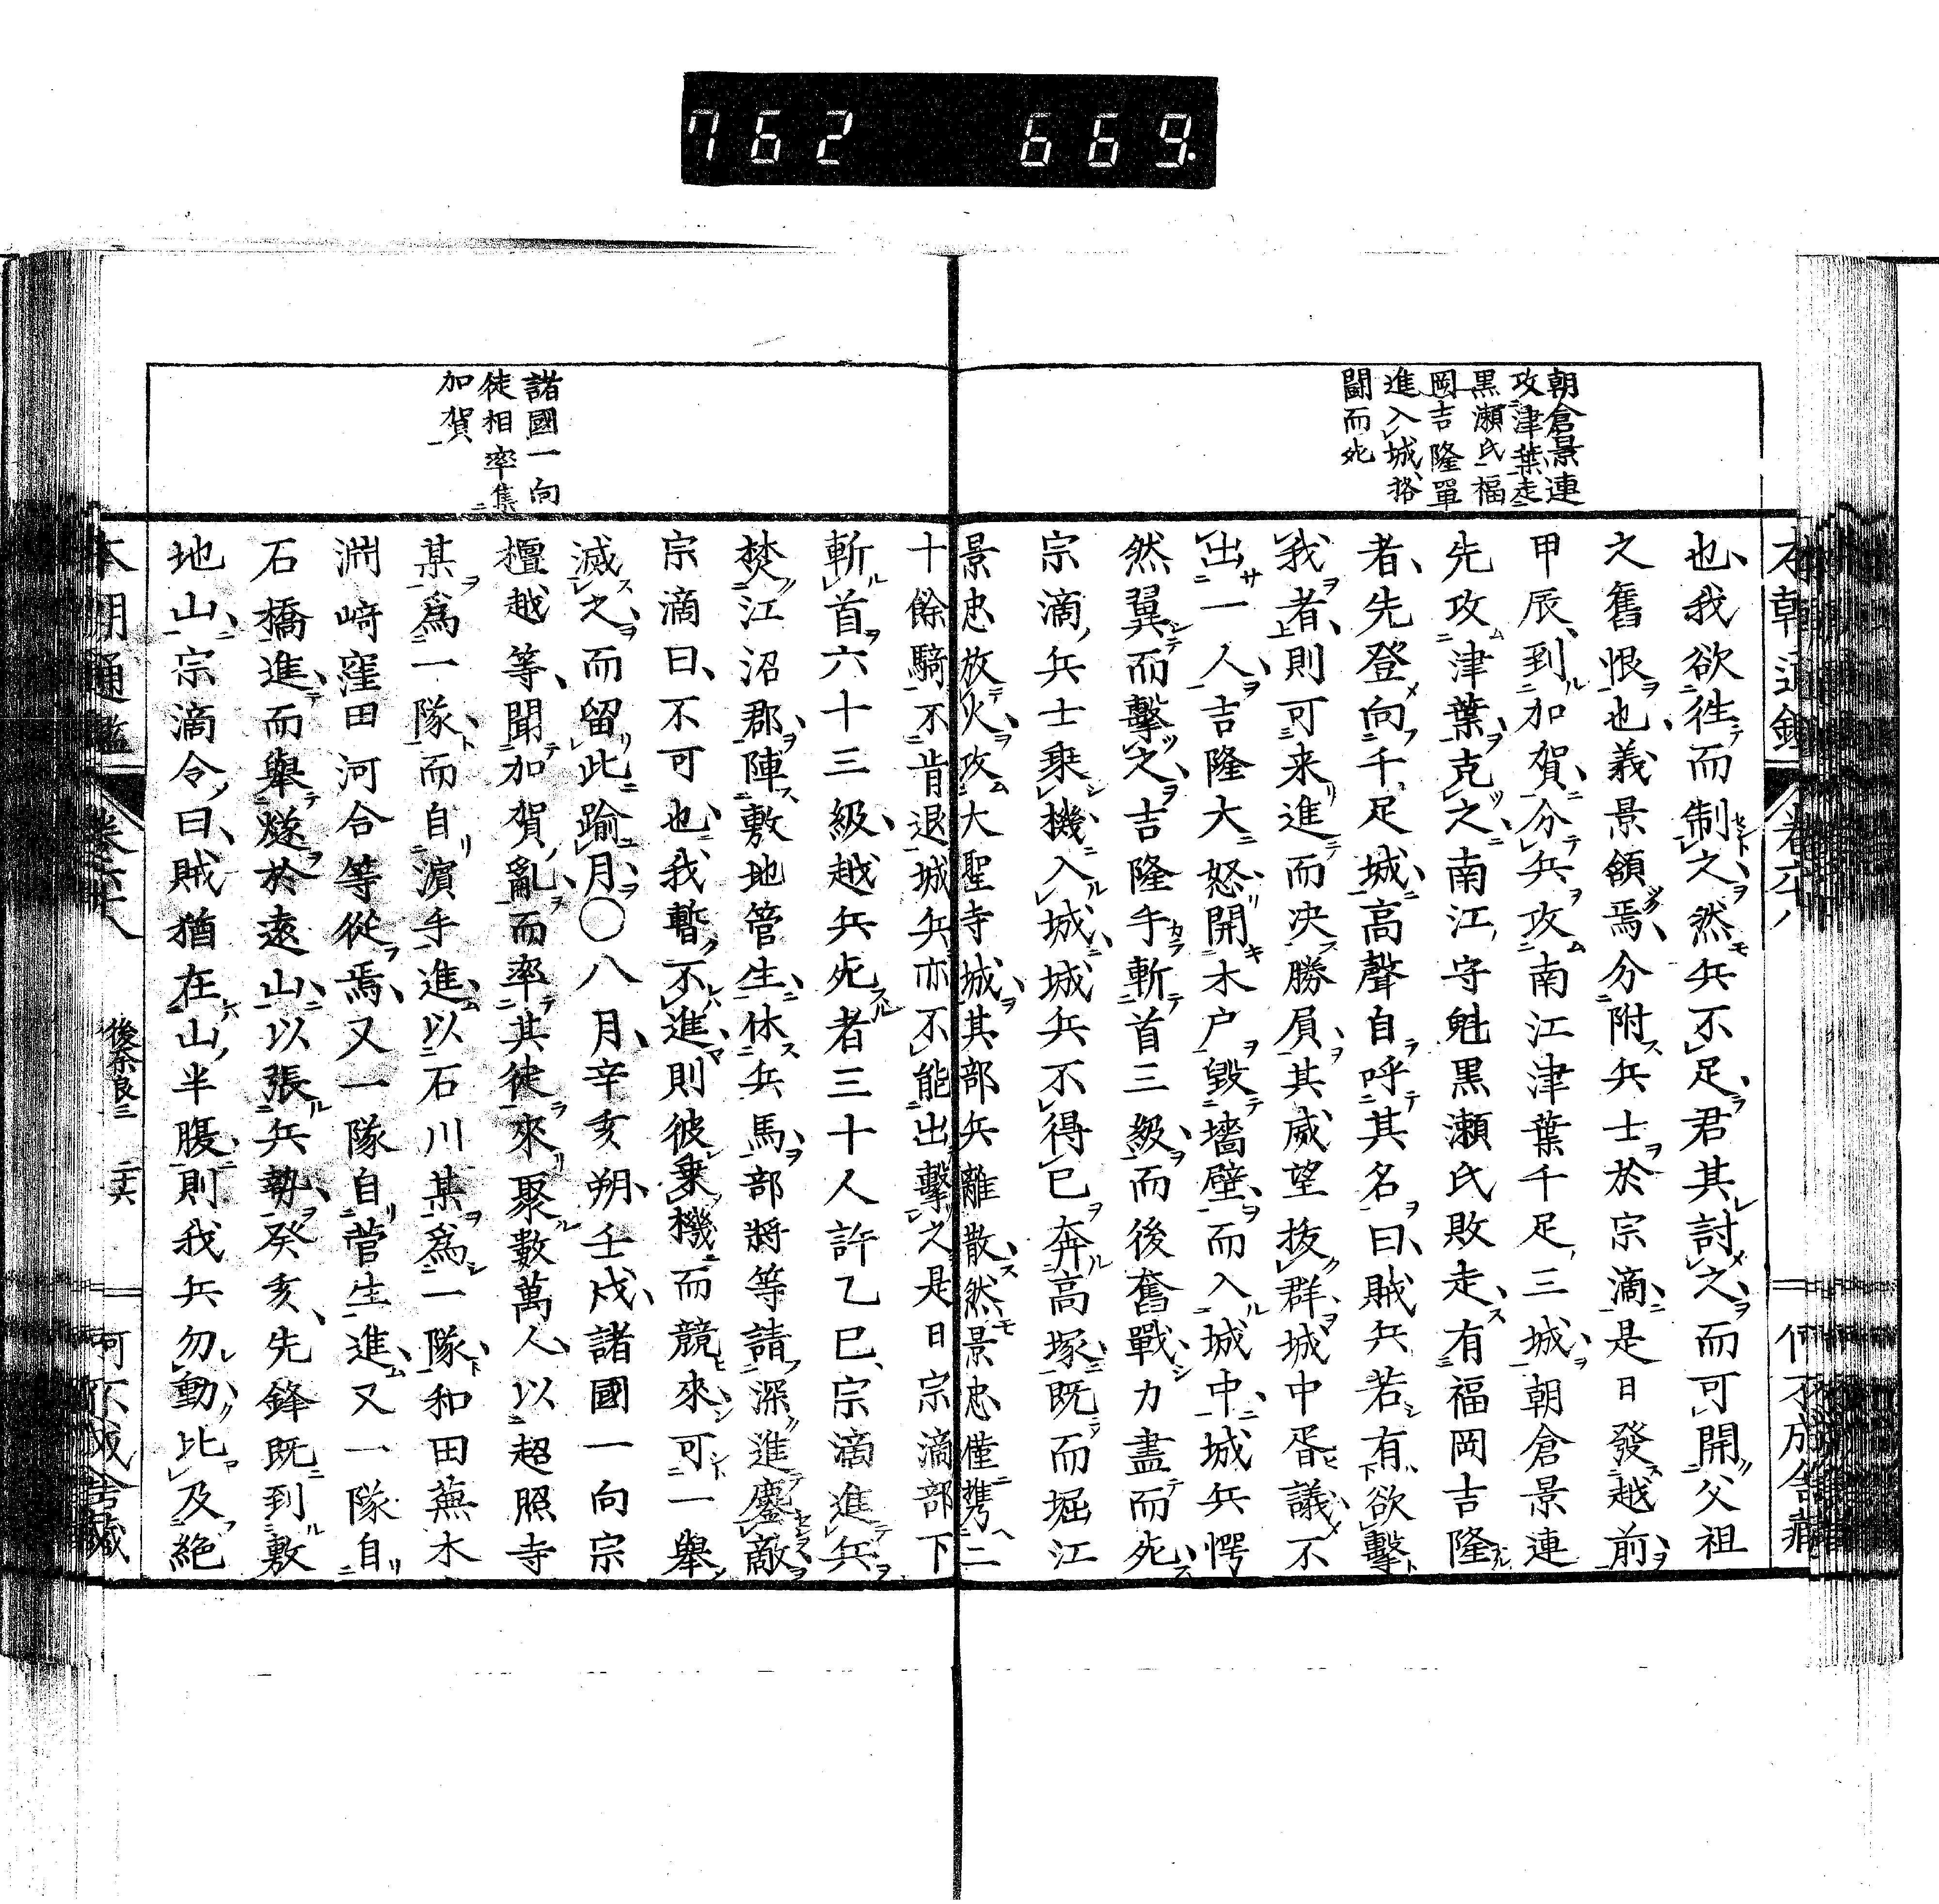 762 669.
朝倉景連
攻津葉走
黒瀬氏福
岡吉隆單
進入城挌
鬪而死
也我欲徃而制之然兵不足君其討之而可開父祖
之舊恨也義景領焉分附兵士於宗滴是日發越前
甲辰到加賀分兵攻南江津葉千足三城朝倉景連
先攻津葉克之南江守魁黒瀬氏敗走有福岡吉隆
者先登向千足城高聲自呼其名曰賊兵若有欲擊
我者則可来進而決勝屓其威望拔群城中胥議不
出一人吉隆大怒開木户毀墻壁而入城中城兵愕
然翼而擊之吉隆手斬首三級而後奮戰力盡而死
宗滴兵士乗機入城城兵不得已奔高塚既而堀江
景忠放火攻大聖寺城其部兵離散然景忠僅携二
十餘騎不肯退城兵亦不能出擊之是日宗滴部下
斬首六十三級越兵死者三十人許乙巳宗滴進兵
焚江沼郡陣敷地菅生休兵馬部將等請深進鏖敵
宗滴曰不可也我暫不進則彼乗機而競來可一舉
滅之而留此踰月〇八月辛亥朔壬戌諸國一向宗
檀越等聞加賀亂而率其徒來聚數萬人以超照寺
某爲一隊而自濵手進以石川某爲一隊和田蕪木
渕﨑窪田河合等從焉又一隊自菅生進又一隊自
石橋進而舉燧於遠山以張兵勢癸亥先鋒既到敷
地山宗滴令曰賊猶在山半腹則我兵勿動比及絶
諸國一向
徒相率集
加賀
本朝通鑑
後奈良三
二十六